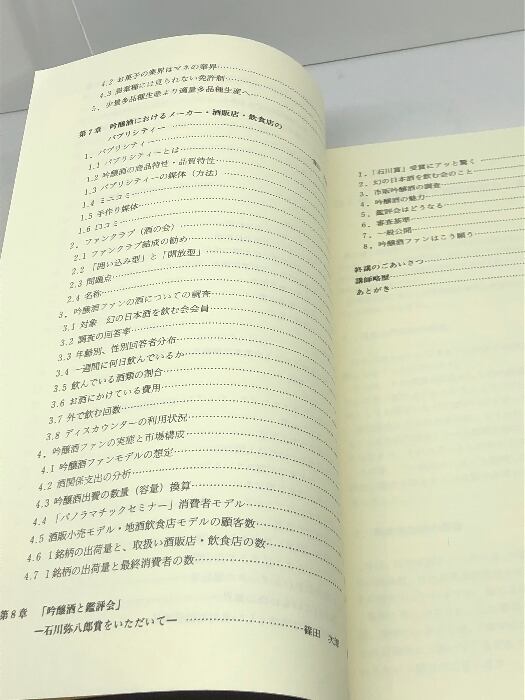 4.2 お菓子の業界はマネの業界
4.3 他業種には見られない免許制
5. 少量多品種生産より適量多品種生産へ
第7章 吟醸酒におけるメーカー・酒販店・飲食店の
パブリシティー
1. パブリシティー
1.1 パブリシティーとは
1.2 吟醸酒の商品特性・品質特性
1.3 パブリシティーの媒体(方法)
1.4 ミニコミ
1.5 手作り媒体
1.6 口コミ
2. ファンクラブ(酒の会)
2.1 ファンクラブ結成の勧め
2.2 「囲い込み型」と「開放型」
2.3 問題点
2.4 名称
3. 吟醸酒ファンの酒についての調査
3.1 対象 幻の日本酒を飲む会会員
3.2 調査の回答率
3.3 年齢別、性別回答者分布
3.4 一週間に何日飲んでいるか
3.5 飲んでいる酒類の割合
3.6 お酒にかけている費用
3.7 外で飲む回数
3.8 ディスカウンターの利用状況
4. 吟醸酒ファンの実態と市場構成
4.1 吟醸酒ファンモデルの想定
4.2 酒関係支出の分析
4.3 吟醸酒出費の数量(容量)換算
4.4 「パノラマチックセミナー」消費者モデル
4.5 酒販小売モデル・地酒飲食店モデルの顧客数
4.6 1銘柄の出荷量と、取扱い酒販店・飲食店の数
4.7 1銘柄の出荷量と最終消費者の数
第8章 「吟醸酒と鑑評会」
―石川弥八郎賞をいただいて― 篠田 次郎
1. 「石川賞」受賞にアッと驚く
2. 幻の日本酒を飲む会のこと
3. 市販吟醸酒の調査
4. 吟醸酒の魅力
5. 鑑評会はどうなる
6. 審査基準
7. 一般公開
8. 吟醸酒ファンはこう願う
終講のごあいさつ
講師略歴
あとがき